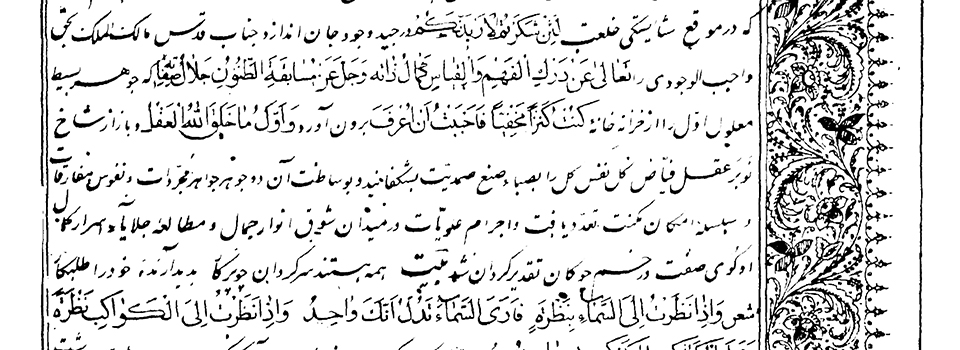 که در موقع شایستگی خلعت لَئِن شَکَرتُم لَاَزیدَنَّکُم در جید وجود جان اندازد و جناب قدس مالک الملک بحق
واجب الوجودی را تَعالی عَن دَرکِ الفَهمِ وَالقِیاسِ کَمالُ ذاتِه وَجَلَّ عَن مُسابَقَةِ الظُّنونِ جَلالُ صِفاتِه که جوهر بسیط
معلول اوّل را از خزانه خانهٔ کُنتُ کَنزاً مَخفِیّاً فَاَحبَبتُ اَن اُعرَفَ برون آورد وَاَوَّلُ ما خَلَقَ اللهُ العَقل و باز از شاخ
نوبر عقل فیّاض کل نفس کل را بصباء صنع صمدیّت بشکفانید و بوساطت آن دو جوهر جواهر مجرّدات و نفوس مفارقات
و سلسله امکان کثرت تعدّد یافت و اجرام علویّات در میدان شوق انوار جمال و مطالعهٔ جلایاء اسرار کمال
او گوی صفت در خم چوکان تقدیر گردان شد بیت همه هستند سرگردان چو پرکار پدید آرندهٔ خود را طلبکار
شعر وَاِذا نَظَرتُ اِلَی السَّماءِ بِنَظرَةٍ فَاَرَی السَّماءَ تَدُلُّ اَنَّکَ واحِدٌ وَاِذا نَظَرتُ اِلَی الکَواکِبِ نَظرَةً